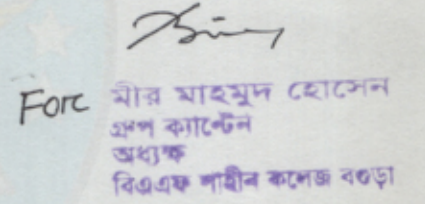 For মীর মাহমুদ হোসেন
গ্রুপ ক্যাপ্টেন
অধ্যক্ষ
বিএএফ শাহীন কলেজ বগুড়া